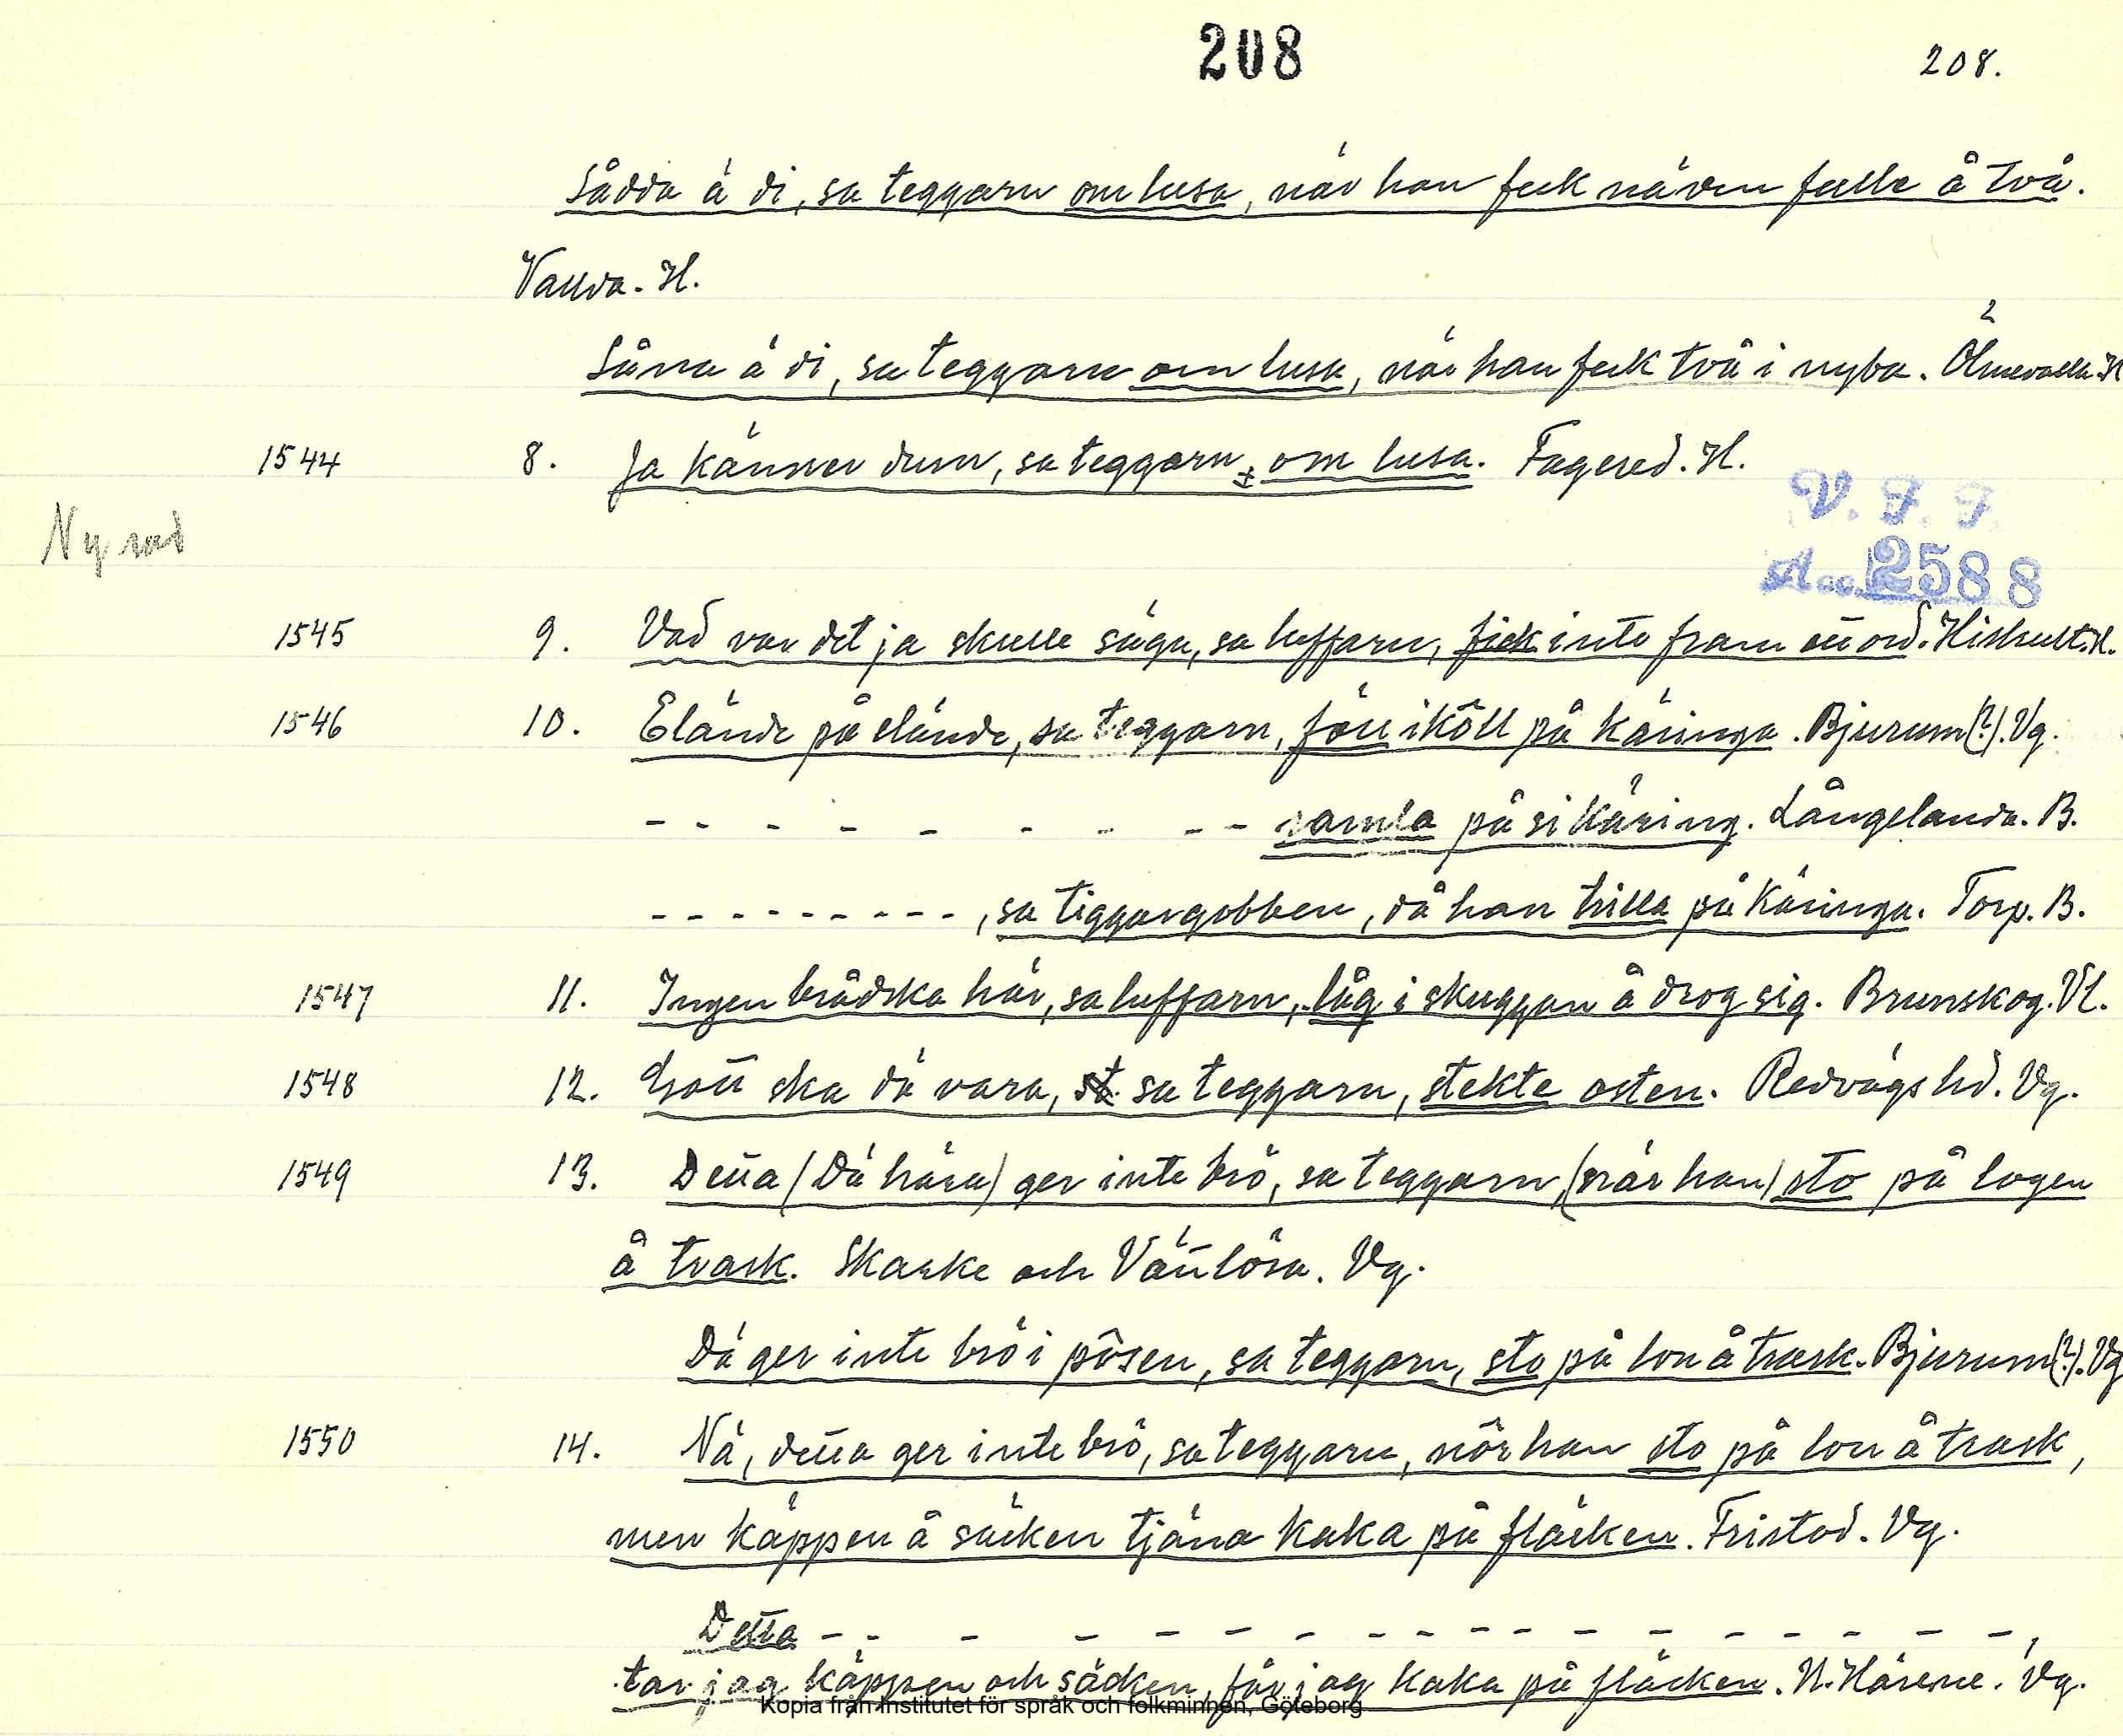 208
208.
Sådda ä di, sa teggarn om lusa, när han feck näven fulle å två.
Vallda. H.
Såna ä di, sa teggarn om lusa, när han feck två i nyba. Ölmevalla. H
1544 8. Ja känner dum, sa teggarn, om lusa. Fagered. H.
V. F. F.
Ny rad
Acc. 2588
1545 9. Vad var det ja skulle säga, sa luffarn, fick inte fram ett ord. Hishult. H.
1546 10. Elände på elände, sa teggarn, föll iköll på käringa. Bjurum (?). Vg.
- - - - - - - - - ramla på si käring. Långelanda. B.
- - - - - - - - -, sa tiggargobben, då han trilla på käringa. Torp. B.
1547 11. Ingen brådska här, sa luffarn, låg i skuggan å drog sig. Brunskog. Vl.
1548 12. Gott ska dä vara, st sa teggarn, stekte osten. Redvägs hd. Vg.
1549 13. Detta (Dä hära) ger inte brö, sa teggarn, (när han) sto på logen
å trask. Skarke och Vättlösa. Vg.
Dä ger inte brö i pôsen, sa teggarn, sto på lon å trask. Bjurum (?). Vg
1550 14. Nä, detta ger inte brö, sa teggarn, nör han sto på lon å trask,
men käppen å säcken tjäna kaka på fläcken. Fristad. Vg.
Detta - - - - - - - - - - - - - - - -,
tar jag käppen och säcken, får jag kaka på fläcken. N. Härene. Vg.
Kopia från Institutet för språk och folkminnen, Göteborg